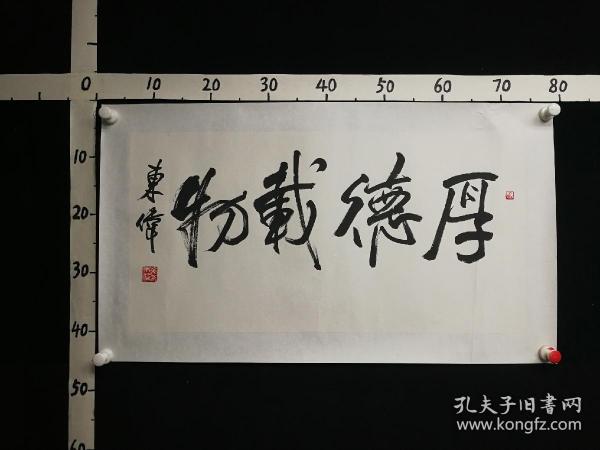 0 10 20 30 40 50 60 70 80
10
20
30
40
50
60
厚德載物
東偉
孔夫子旧書网
www.kongfz.com